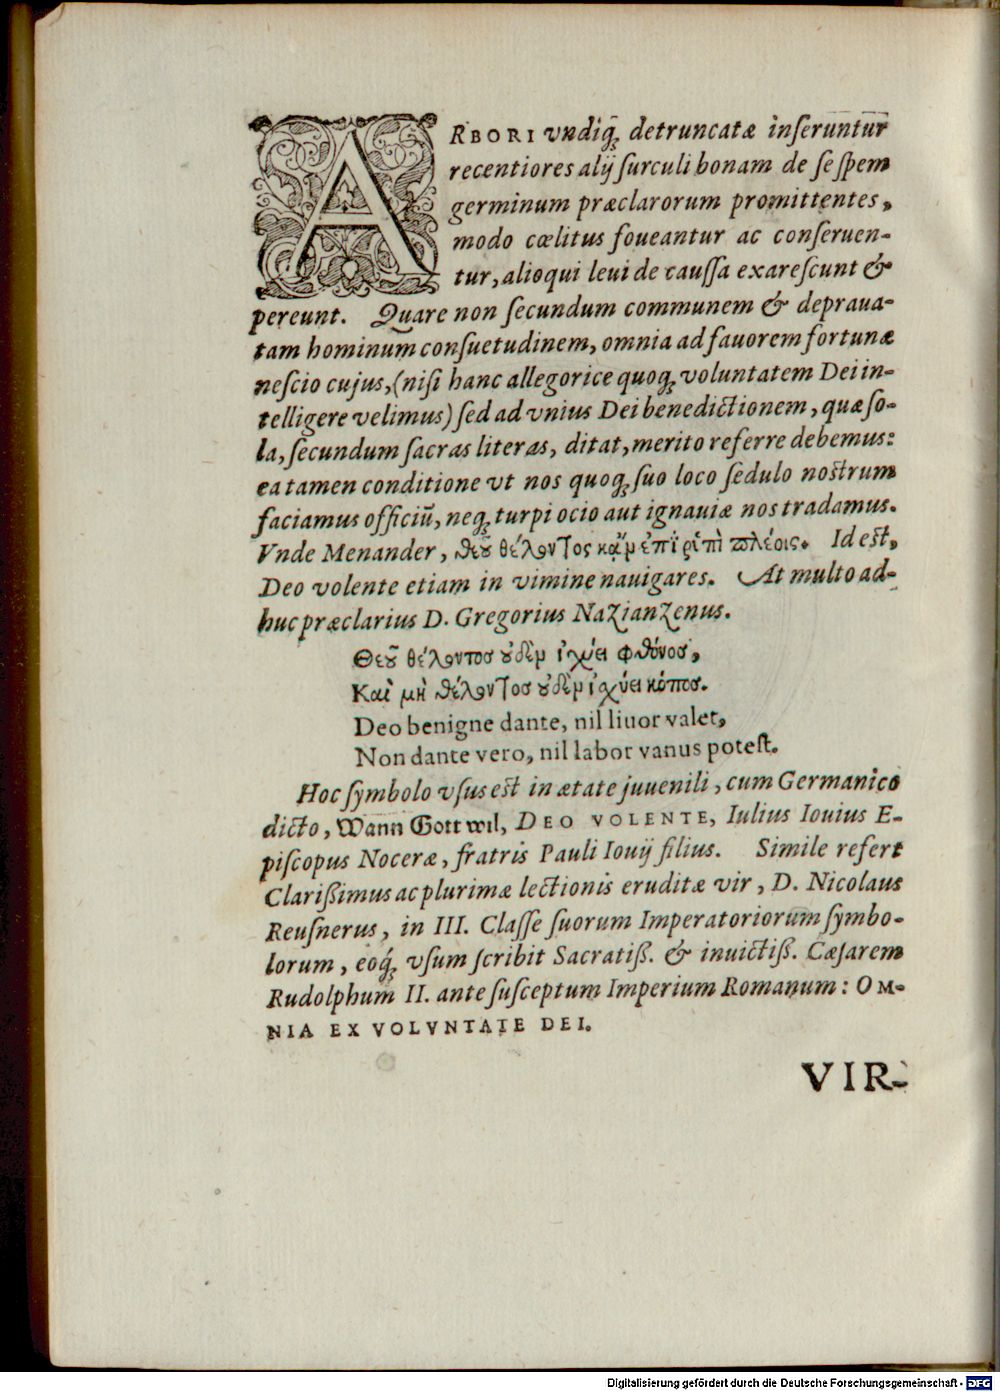 ARBORI vndiq́; detruncatæ inſeruntur
recentiores alij ſurculi bonam de ſe ſpem
germinum præclarorum promittentes,
modo cœlitus foueantur ac conſeruen-
tur, alioqui leui de cauſſa exareſcunt &
pereunt. Quare non ſecundum communem & depraua-
tam hominum conſuetudinem, omnia ad fauorem fortunæ
neſcio cujus, (niſi hanc allegorice quoq; voluntatem Dei in-
telligere velimus) ſed ad vnius Dei benedictionem, quæ ſo-
la, ſecundum ſacras literas, ditat, merito referre debemus:
ea tamen conditione vt nos quoq; ſuo loco ſedulo noſtrum
faciamus officiū, neq; turpi ocio aut ignauiæ nos tradamus.
Vnde Menander, θεοῦ θέλοντος κᾂμ ἐπὶ ῥιπὶ πλέοις. Id eſt,
Deo volente etiam in vimine nauigares. At multo ad-
huc præclarius D. Gregorius Nazianzenus.
Θεοῦ θέλοντος οὐδὲμ ἰχύει φθόνος,
Καὶ μὴ θέλοντος οὐδὲμ ἰχύει κόπος.
Deo benigne dante, nil liuor valet,
Non dante vero, nil labor vanus poteſt.
Hoc ſymbolo vſus eſt in ætate juuenili, cum Germanico
dicto, Wann Gott wil, DEO VOLENTE, Iulius Iouius E-
piſcopus Noceræ, fratris Pauli Iouij filius. Simile refert
Clarißimus ac plurimæ lectionis eruditæ vir, D. Nicolaus
Reuſnerus, in III. Claſſe ſuorum Imperatoriorum ſymbo-
lorum, eoq́; vſum ſcribit Sacratiß. & inuictiß. Cæſarem
Rudolphum II. ante ſuſceptum Imperium Romanum: OM-
NIA EX VOLVNTATE DEI.
VIR-
Digitalisierung gefördert durch die Deutsche Forschungsgemeinschaft - DFG